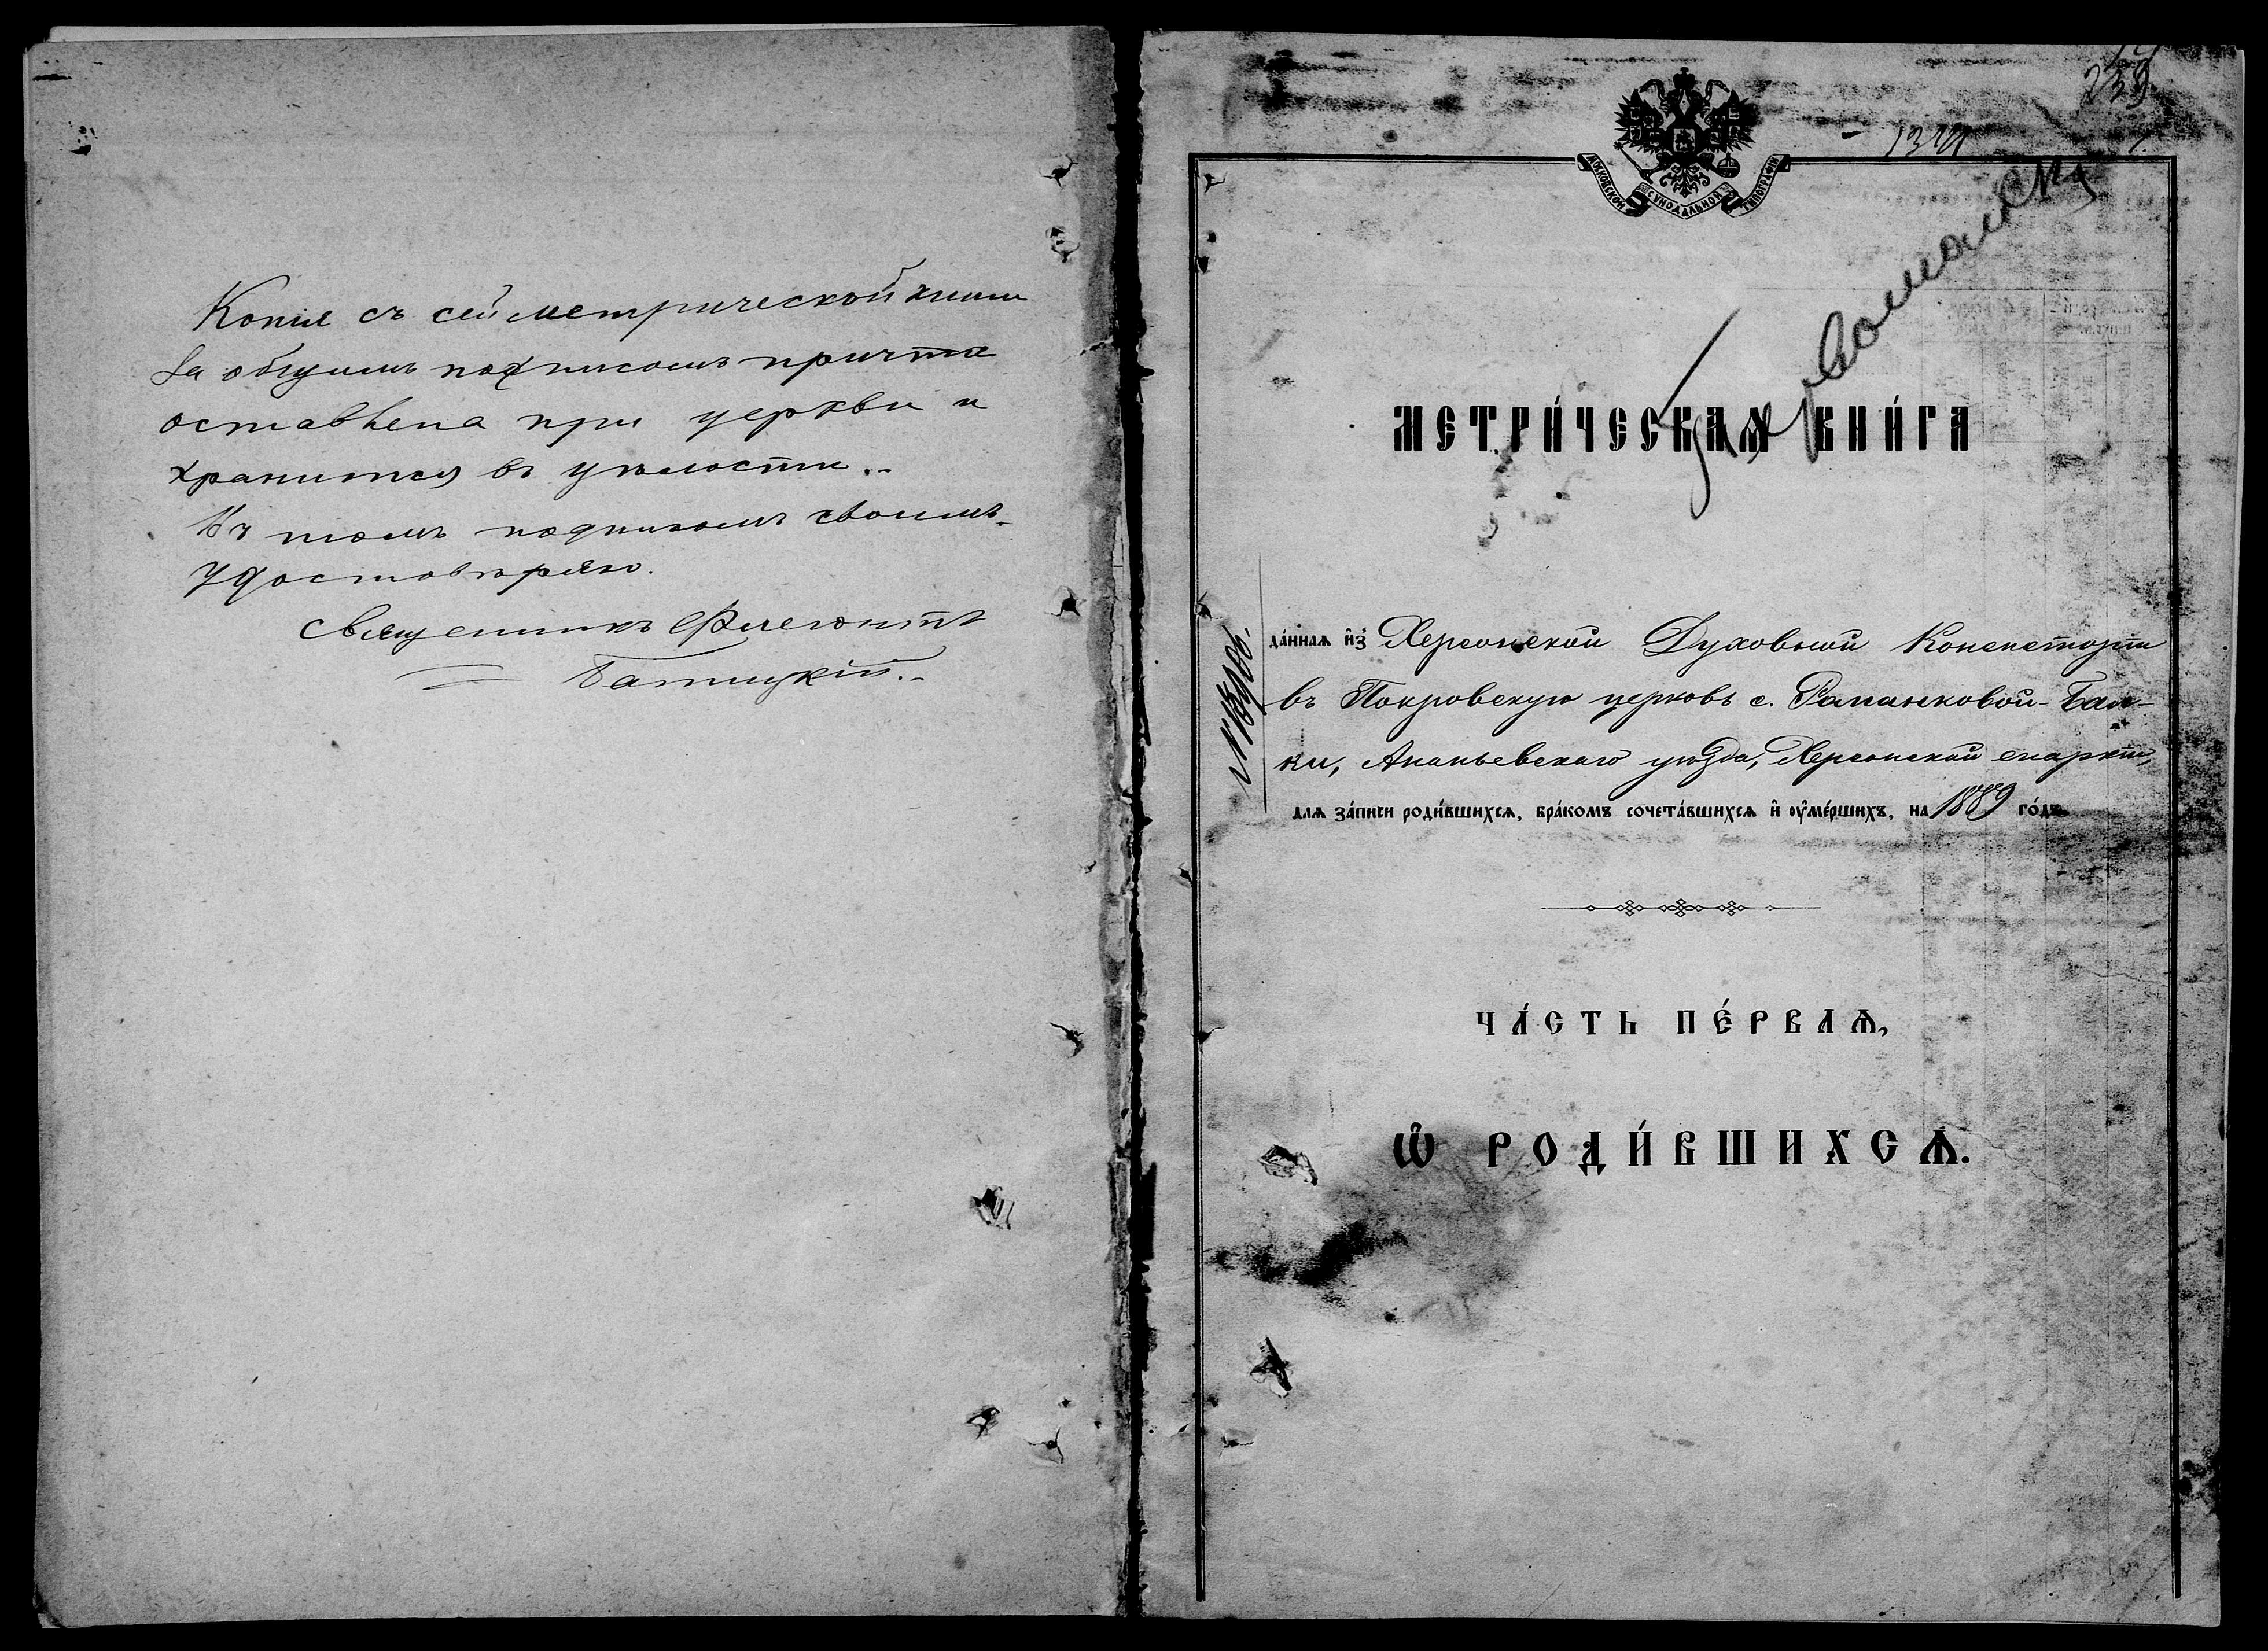 Копія съ сей метрической книги
за общимъ подписомъ причта
оставлена при церкви и
хранится въ цѣлости.-
Въ томъ подписомъ своимъ
удостовѣряю.
Священникъ Флегонтъ
239
МОСКОВСКОЙ СѴНОДАЛЬНОЙ ТИПОГРАФІИ
МЕТРИ́ЧЕСКАѦ КНИ́ГА
да́ннаѧ и҆з̾ Херсонской Духовной Консисторіи
въ Покровскую церковь с. Романковой-Бал-
ки, Ананьевскаго уѣзда, Херсонской епархіи,
длѧ за́писи роди́вшихсѧ, бра́комъ сочета́вшихсѧ и҆ ᲂу҆ме́ршихъ, на 1889 го́дъ.
ЧА́СТЬ ПЕ́РВАѦ,
Ѡ҆ РОДИ́ВШИХСѦ.